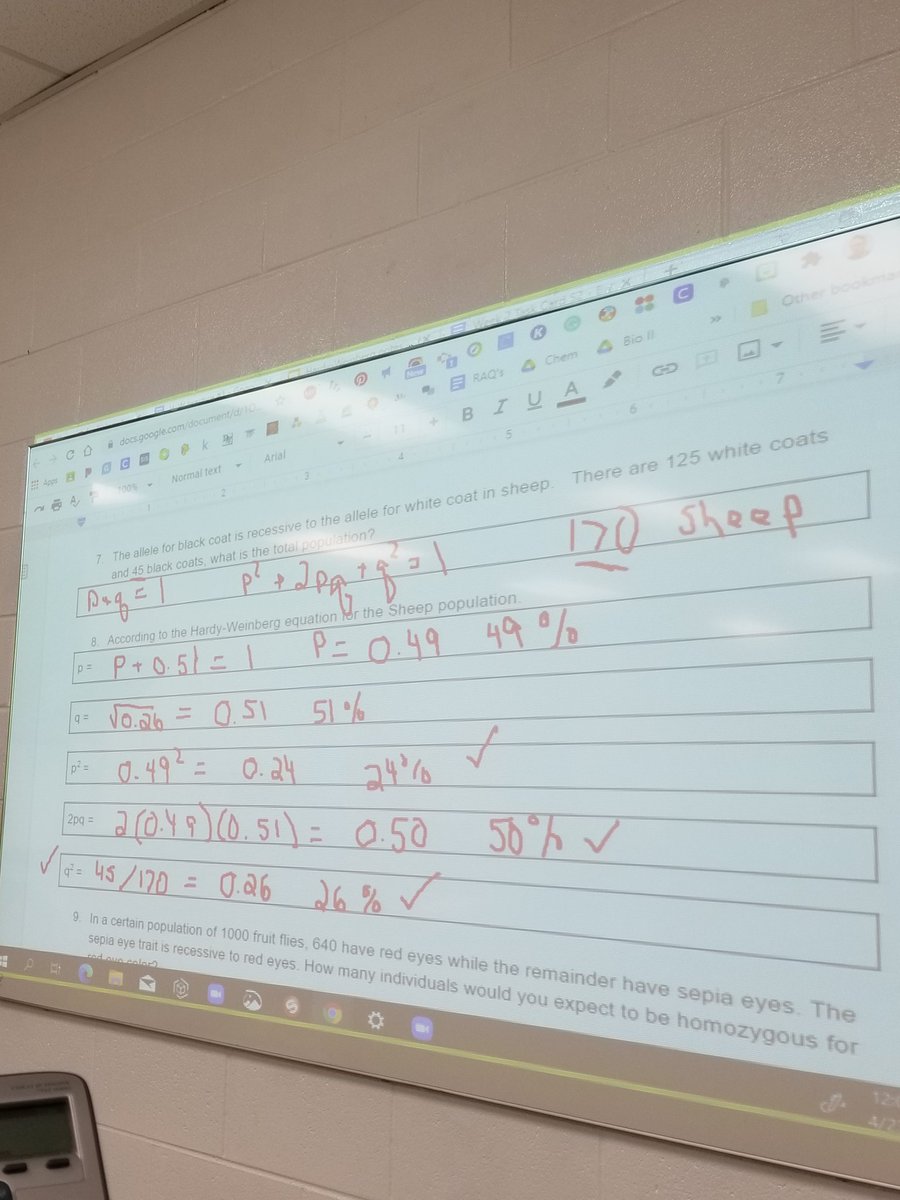 Other bookma
docs.google.com/document/d/1
New
RAQ's
Chem
Bio II
Apps
100%
Normal text
Arial
11
B I U A
1 2 3 4 5 6 7
7. The allele for black coat is recessive to the allele for white coat in sheep. There are 125 white coats
and 45 black coats, what is the total population?
p+q = 1 p² + 2pq + q² = 1 170 sheep
8. According to the Hardy-Weinberg equation for the Sheep population.
p = P + 0.51 = 1 P = 0.49 49%
q = √0.26 = 0.51 51%
p² = 0.49² = 0.24 24% ✓
2pq = 2(0.49)(0.51) = 0.50 50% ✓
✓ q² = 45/170 = 0.26 26% ✓
9. In a certain population of 1000 fruit flies, 640 have red eyes while the remainder have sepia eyes. The
sepia eye trait is recessive to red eyes. How many individuals would you expect to be homozygous for
red eye color?